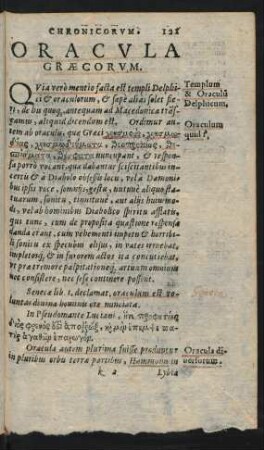 CHRONICORVM. 121
ORACVLA
GRÆCORVM.
QVia verò mentio facta est templi Delphi-
ci & oraculorum, & sæpè aliàs solet fie-
ri, de his quoq, antequam ad Macedonica trás-
gamus, aliquid dicendum est. Ordimur au-
tem ab oraculo, quæ Græci
nuncupant, & respon-
sa verò vocant, quæ dabantur sciscitantibus in-
certu & à Diabolo obsessis locu, vel à Dæmonibus
ipsis voce, somnijs, gestu, nutuue alicuius sta-
tuarum, sonitu, tinnituue, aut alijs huiusmo-
di, vel ab hominibus Diabolico spiritu afflatis,
qui tunc, cum de proposita quæstione responsa
danda erant, cum vehementi impetu & horribi-
li sonitu ex specubus elisus, in vates irruebat,
impletosq, & in furorem actos ita concutiebat,
vt præ tremore palpitationeq, artuum omnium
nec consistere, nec sese continere possint.
Seneca lib. 1. declamat, oraculum est vo-
luntas diuina hominis ore nunciata.
In Pseudomante Luciani,
Oracula autem plurima fuisse produntur
in pluribus orbis terræ partibus, Hammonis in
k 2 Lybia
Templum
& Oraculũ
Delphicum.
Oraculum
quid?
Seneca.
Oracula di-
uersorum.